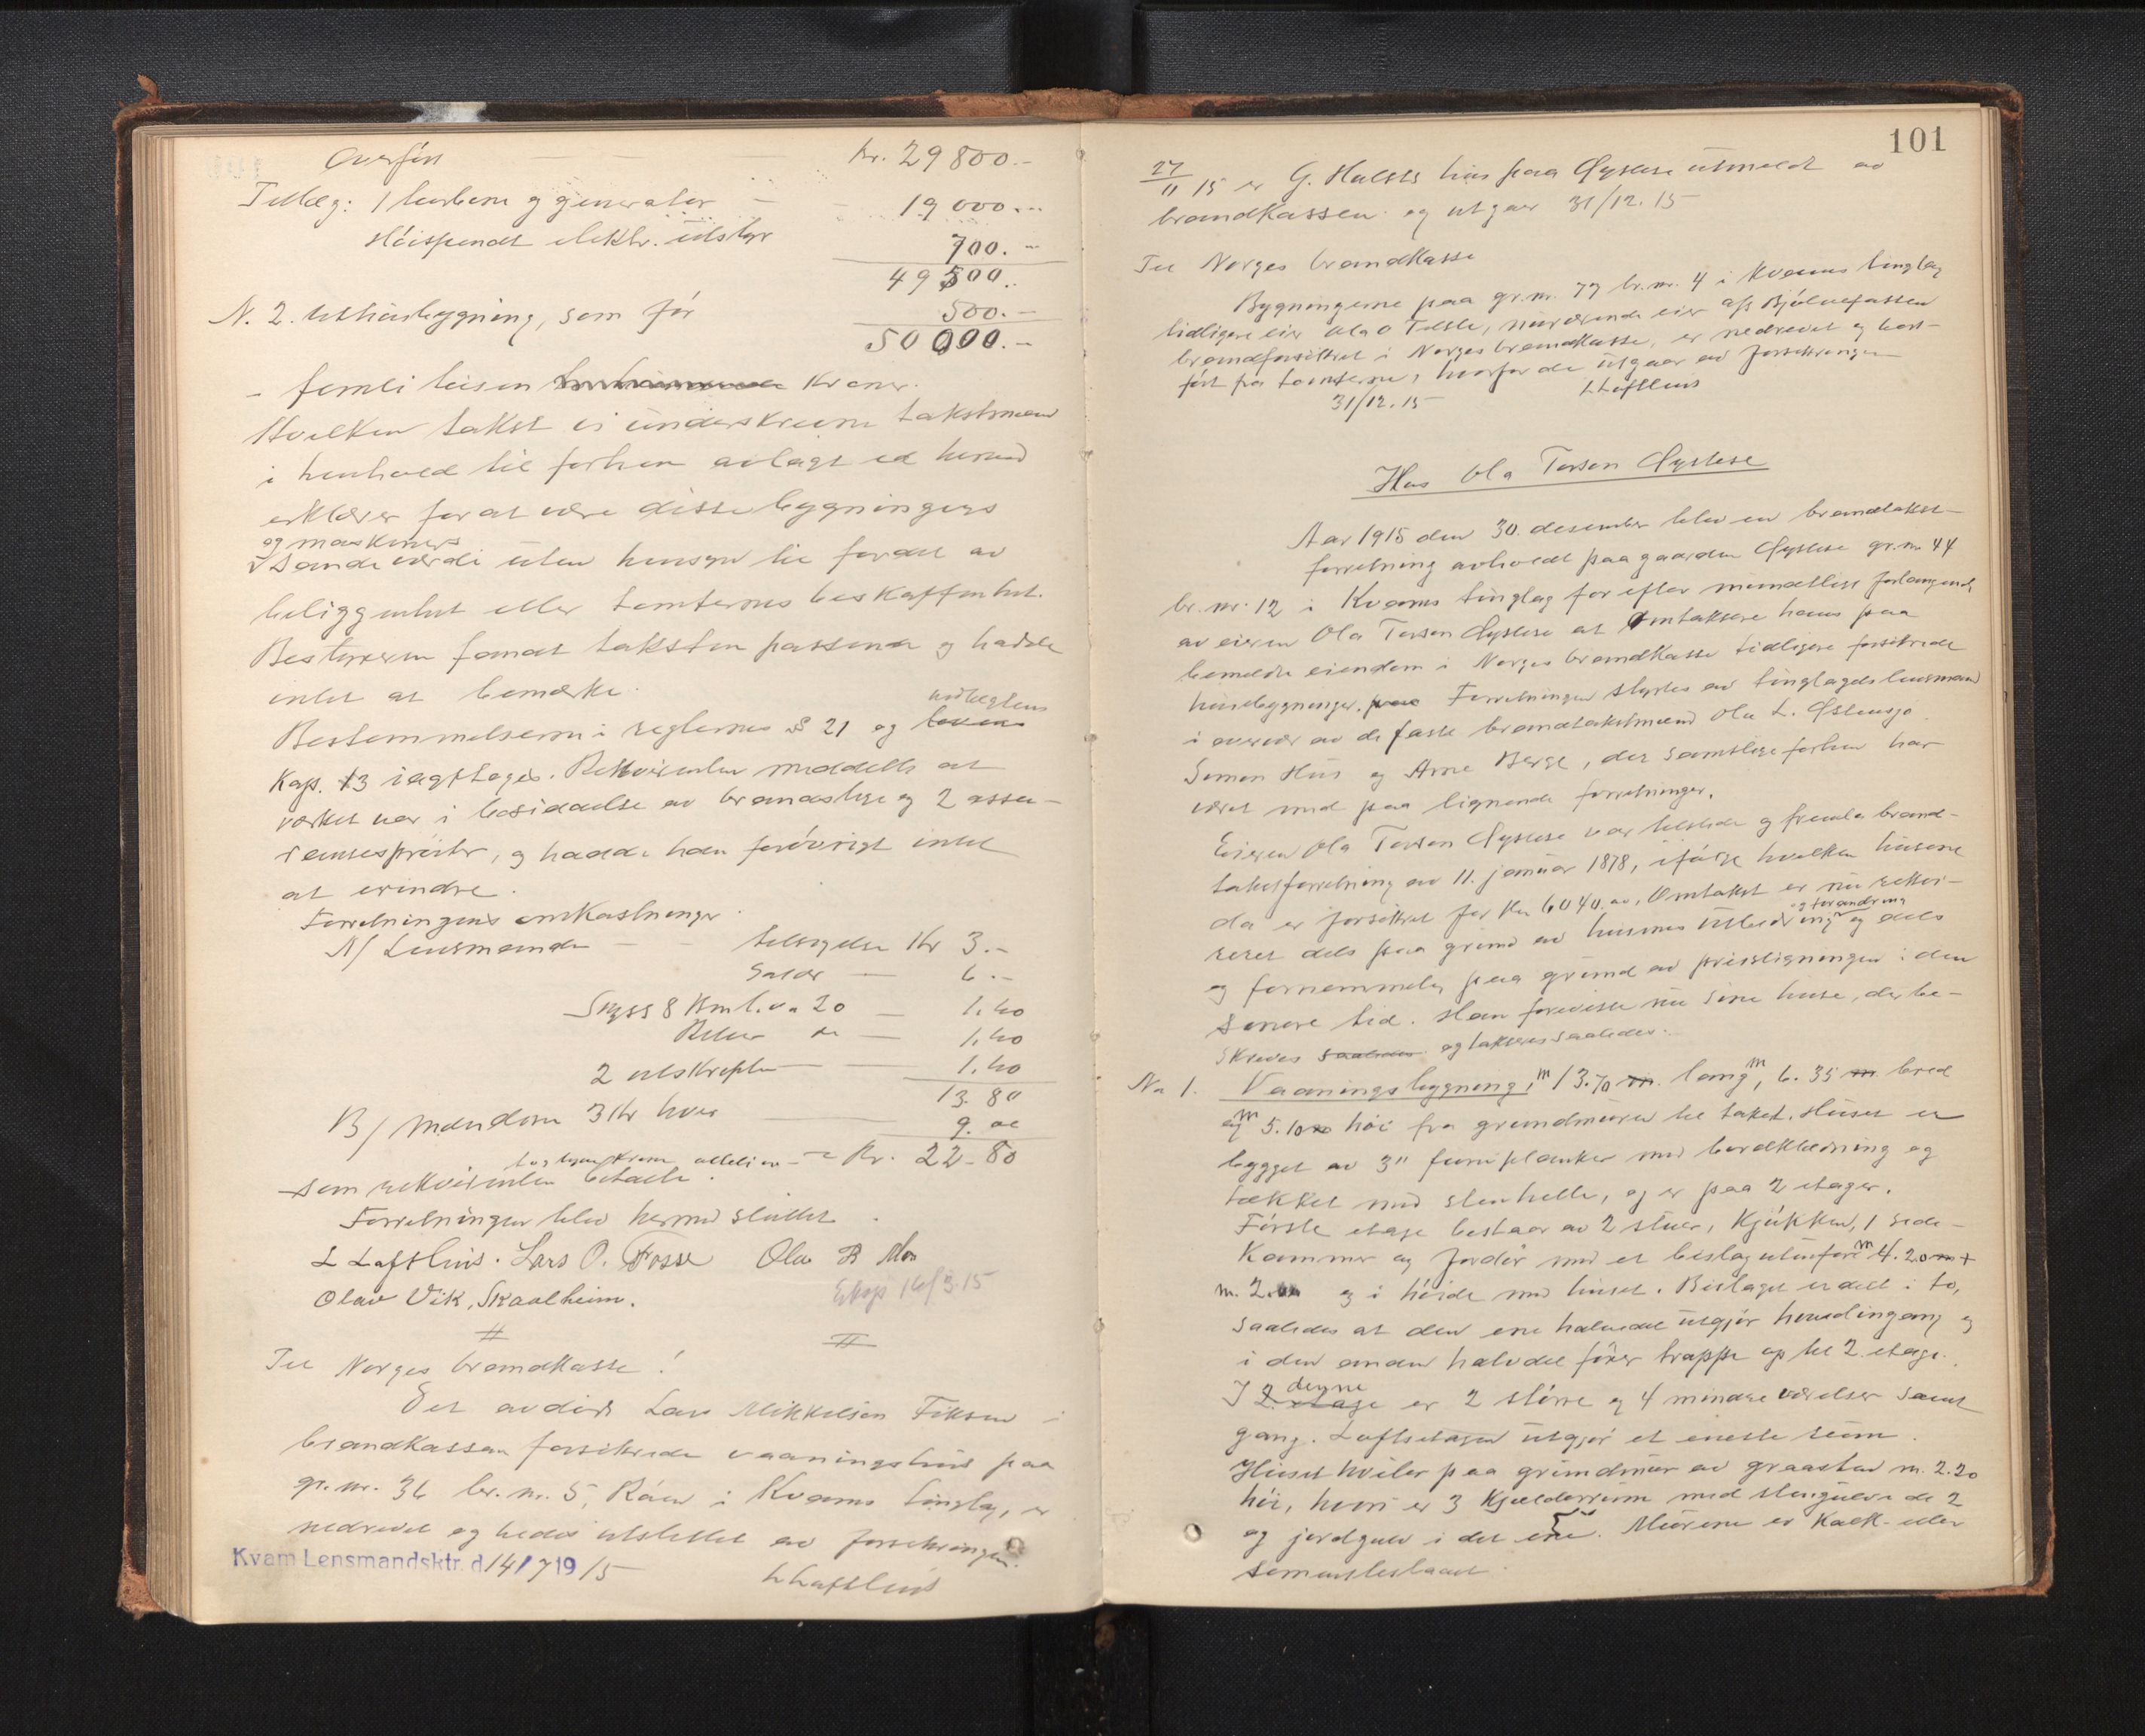 Overført — — — Kr. 29800.-
Tillæg: 1 turbin og generator — - 19000.-
Høispendt elektr. utstyr 700.-
49500.-
N. 2. Uthusbygning, som før 500.-
50000.-
- femti tusen Kroner.
Hvilken takst vi underskrevne takstmænd
i henhold til forhen avlagt ed herved
erklærer for at være disse bygningers
og maskiners
sande værdi uten hensyn til fordel av
beliggenhet eller tomternes beskaffenhet.
Bestyreren fandt taksten passende og hadde
intet at bemerke.
Bestemmelserne i reglernes § 21 og
Kap. 13 iagttages. Rekvirenten meddelte at
verket var i besiddelse av brandstige og 2 asse-
ransesprøiter, og hadde han forøvrigt intet
at erindre.
Forretningens omkostninger.
A/ Lensmanden — - tilsigelse Kr 3.-
Salær — 6.-
Skyss 8 Km. l. v. a 20 — 1.60
Retur do — 1.60
2 utskrifter — — 1.60
13.80
B/ Mændene 3 Kr hver — 9.00
Kr. 22-80
som rekvirenten betalte.
Forretningen blev hermed sluttet.
L Lofthus. Lars O. Fosse Ola B Mo
Olav Vik, Skaalheim. Eksp 16/3.15
# #
Til Norges brandkasse!
Det avdøde Lars Mikkelsen Fiksen i
brandkassen forsikrede vaaningshus paa
gr. nr. 36 br. nr. 5, i Kvams tinglag, er
nedrevet og bedes utslettet av forsikringen.
Kvam Lensmandsktr. d 14/7 1915
L Lofthus
101
27/11 15 er G. Hulsts hus paa Øystese utmeldt av
brandkassen og utgaar 31/12.15
Til Norges brandkasse
Bygningerne paa gr. nr. 77 br. nr. 4 i Kvams tinglag
tidligere eier Ola O Tolste, nuværende eier a/s Bjølvefossen
brandforsikret i Norges brandkasse, er nedrevet og bort-
ført fra tomterne, hvorfor de utgaar av forsikringen
31/12.15 L Lofthus
Hus Ola Torsen Øystese
Aar 1915 den 30. desember blev en brandtakst-
forretning avholdt paa gaarden Øystese gr. nr 44
br. nr. 12 i Kvams tinglag for efter mundtlig forlangende
av eieren Ola Torsen Øystese at omtaksere hans paa
bemeldte eiendom i Norges brandkasse tidligere forsikrede
husbygninger. Forretningen styrtes av tinglagets lensmand
i overvær av de faste brandtakstmænd Ola L. Østensjø
Simon Hus og Arne Berge, der samtlige forhen har
været med paa lignende forretninger.
Eieren Ola Torsen Øystese var tilstede og fremla brand-
takstforretning av 11. januar 1878, ifølge hvilken husene
da er forsikret for Kr 6040.00. Omtakst er nu rekvi-
og forandring
reret dels paa grund av husenes utbedring og dels
og fornemmelig paa grund av prisstigningen i den
senere tid. Han foreviste nu sine huse, der be-
skreves saaledes og takseres saaledes:
No 1. Vaaningsbygning, m 13.70 m. lang, m 6.35 m bred
og m 5.10 m høi fra grundmuren til taket. Huset er
bygget av 3" furuplanker med bordklædning og
tækket med stenhelle, og er paa 2 etager.
Første etage bestaar av 2 stuer, kjøkken, 1 side-
kammer og med et bislag utenfor m 4.20 m +
m. 2.00 og i høide med huset. Bislaget er delt i to,
saaledes at den ene halvdel utgjør hovedingang og
i den anden halvdel fører trappe op til 2. etage.
denne
I 2 etage er 2 større og 4 mindre værelser samt
gang. Loftsetagen utgjør et eneste rum.
Huset hviler paa grundmur av graasten m. 2.20
høi, hvori er 3 kjælderrum med stengulv i de 2
og jordgulv i det ene. Murene er kalk- eller
sementslaat.